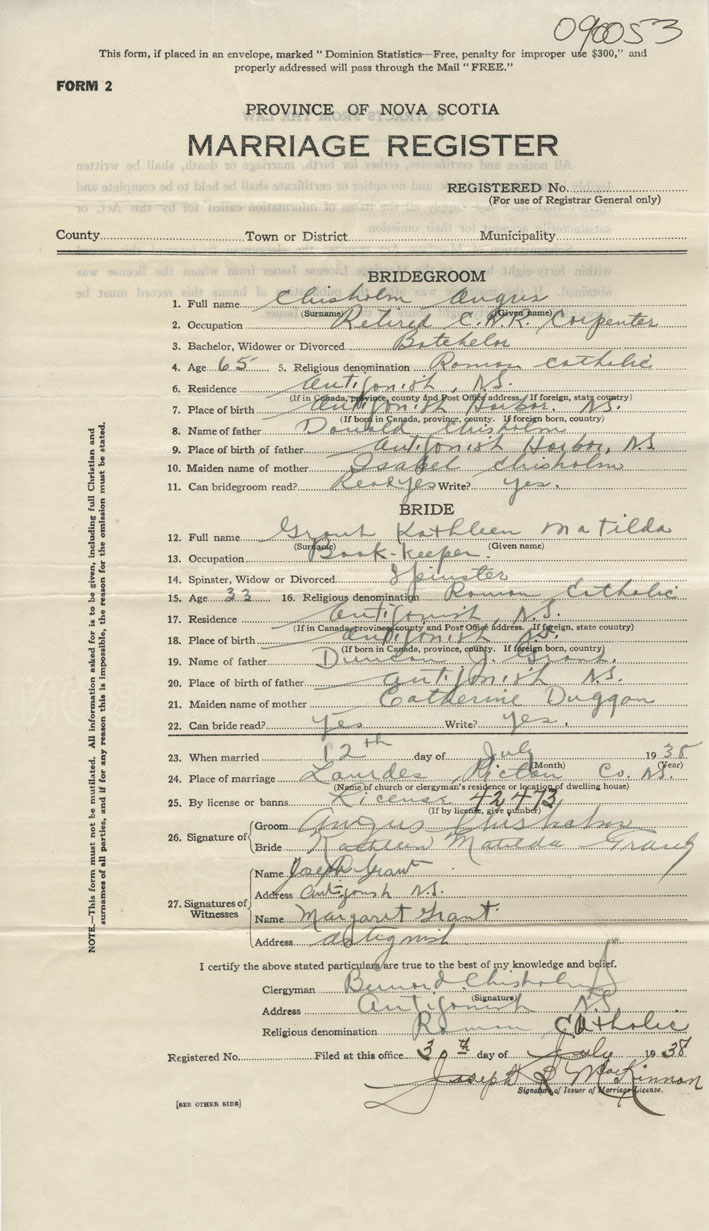 090053
This form, if placed in an envelope, marked "Dominion Statistics—Free, penalty for improper use $300," and
properly addressed will pass through the Mail "FREE."
FORM 2
PROVINCE OF NOVA SCOTIA
MARRIAGE REGISTER
REGISTERED No.
(For use of Registrar General only)
County Town or District Municipality
BRIDEGROOM
1. Full name Chisholm Angus
(Surname) (Given name)
2. Occupation Retired C.N.R. Carpenter
3. Bachelor, Widower or Divorced Batchelor
4. Age 65 5. Religious denomination Roman Catholic
6. Residence Antigonish, N.S.
(If in Canada, province, county and Post Office address. If foreign, state country)
7. Place of birth Antigonish Harbor, N.S.
(If born in Canada, province, county. If foreign born, country)
8. Name of father Donald Chisholm
9. Place of birth of father Antigonish Harbor, N.S.
10. Maiden name of mother Isabel Chisholm
11. Can bridegroom read? Read yes Write? yes.
BRIDE
12. Full name Grant Kathleen Matilda
(Surname) (Given name)
13. Occupation Book-keeper.
14. Spinster, Widow or Divorced Spinster
15. Age 33 16. Religious denomination Roman Catholic
17. Residence Antigonish, N.S.
(If in Canada, province, county and Post Office address. If foreign, state country)
18. Place of birth Antigonish N.S.
(If born in Canada, province, county. If foreign born, country)
19. Name of father Duncan J. Grant.
20. Place of birth of father Antigonish N.S.
21. Maiden name of mother Catherine Duggan
22. Can bride read? Yes Write? Yes.
23. When married 12th day of July 1938
(Month) (Year)
24. Place of marriage Lourdes, Pictou Co. N.S.
(Name of church or clergyman's residence or location of dwelling house)
25. By license or banns License 42473
(If by license, give number)
26. Signature of Groom Angus Chisholm
Bride Kathleen Matilda Grant
27. Signatures of Witnesses Name Joseph D Grant
Address Antigonish N.S.
Name Margaret Grant.
Address Antigonish
I certify the above stated particulars are true to the best of my knowledge and belief.
Clergyman Bernard Chisholm
(Signature)
Address Antigonish N.S.
Religious denomination Roman Catholic
Registered No. Filed at this office 30th day of July 1938
Joseph D MacKinnon
Signature of Issuer of Marriage License.
[SEE OTHER SIDE]
NOTE.—This form must not be mutilated. All information asked for is to be given, including full Christian and
surnames of all parties, and if for any reason this is impossible, the reason for the omission must be stated.